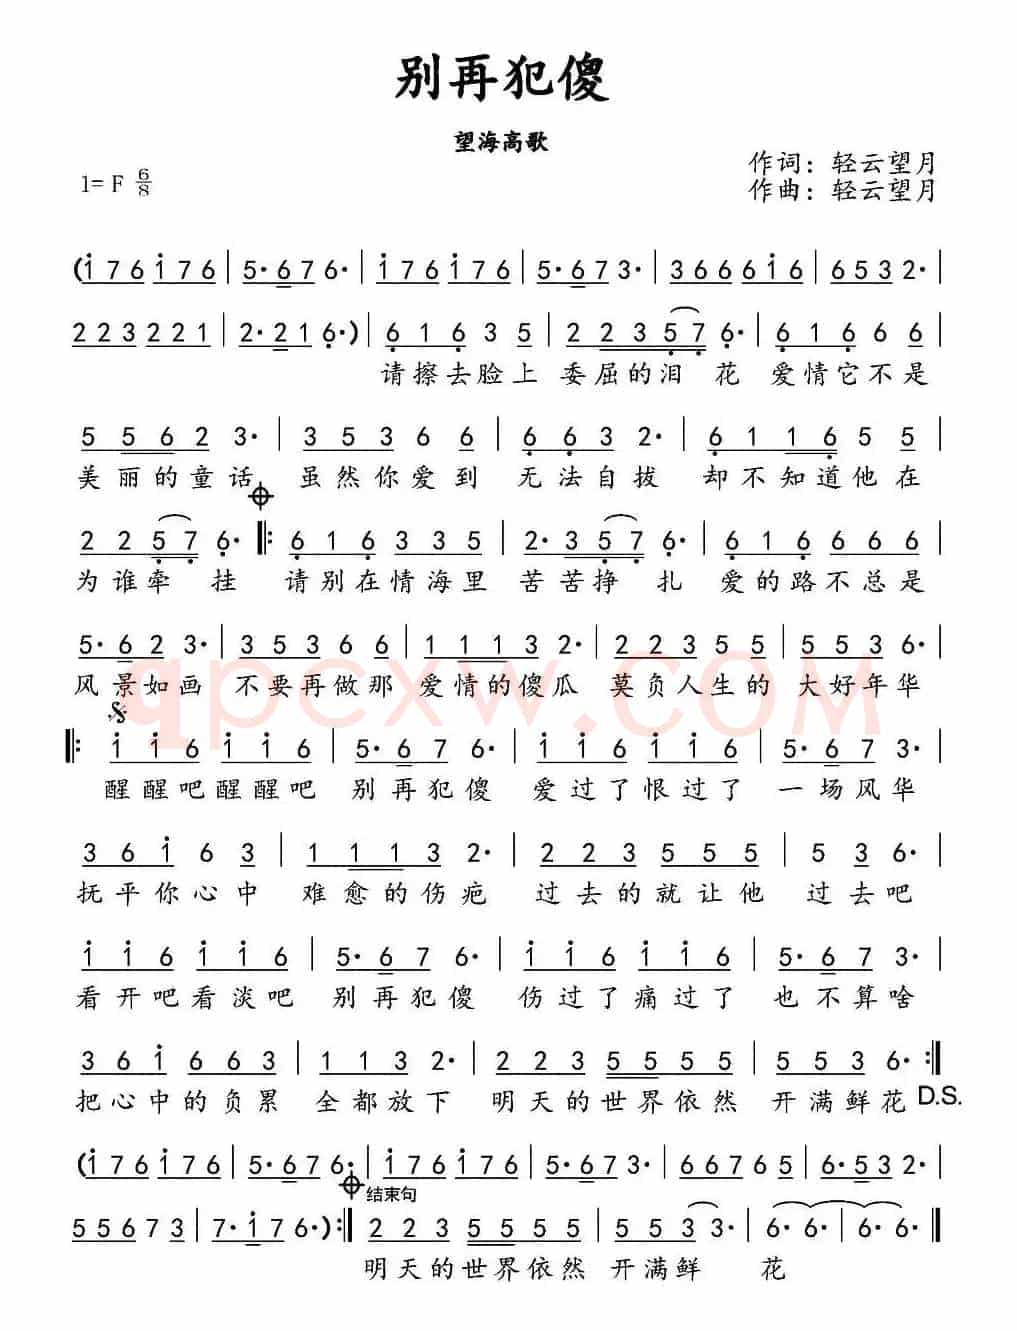 别再犯傻
望海高歌
作词：轻云望月
1= F 6/8
作曲：轻云望月
(i 7 6 i 7 6 | 5· 6 7 6· | i 7 6 i 7 6 | 5· 6 7 3· | 3 6 6 6 i 6 | 6 5 3 2· |
2 2 3 2 2 1 | 2· 2 1 6·) | 6 1 6 3 5 | 2 2 3 5 7 6· | 6 1 6 6 6 |
请擦去脸上 委屈的泪 花 爱情它不是
5 5 6 2 3· | 3 5 3 6 6 | 6 6 3 2· | 6 1 1 6 5 5 |
美丽的童话 虽然你爱到 无法自拔 却不知道他在
2 2 5 7 6· |: 6 1 6 3 3 5 | 2· 3 5 7 6· | 6 1 6 6 6 6 |
为谁牵 挂 请别在情海里 苦苦挣 扎 爱的路不总是
5· 6 2 3· | 3 5 3 6 6 | 1 1 1 3 2· | 2 2 3 5 5 | 5 5 3 6· |
风景如画 不要再做那 爱情的傻瓜 莫负人生的 大好年华
qpcxw.COM
|: i i 6 i i 6 | 5· 6 7 6· | i i 6 i i 6 | 5· 6 7 3· |
醒醒吧醒醒吧 别再犯傻 爱过了恨过了 一场风华
3 6 i 6 3 | 1 1 1 3 2· | 2 2 3 5 5 5 | 5 3 6· |
抚平你心中 难愈的伤疤 过去的就让他 过去吧
i i 6 i i 6 | 5· 6 7 6· | i i 6 i i 6 | 5· 6 7 3· |
看开吧看淡吧 别再犯傻 伤过了痛过了 也不算啥
3 6 i 6 6 3 | 1 1 3 2· | 2 2 3 5 5 5 5 | 5 5 3 6· :|
把心中的负累 全都放下 明天的世界依然 开满鲜花 D.S.
(i 7 6 i 7 6 | 5· 6 7 6· | i 7 6 i 7 6 | 5· 6 7 3· | 6 6 7 6 5 | 6· 5 3 2· |
结束句
5 5 6 7 3 | 7· i 7 6·) :| 2 2 3 5 5 5 5 | 5 5 3 3· | 6· 6· | 6· 6· |
明天的世界依然 开满鲜 花